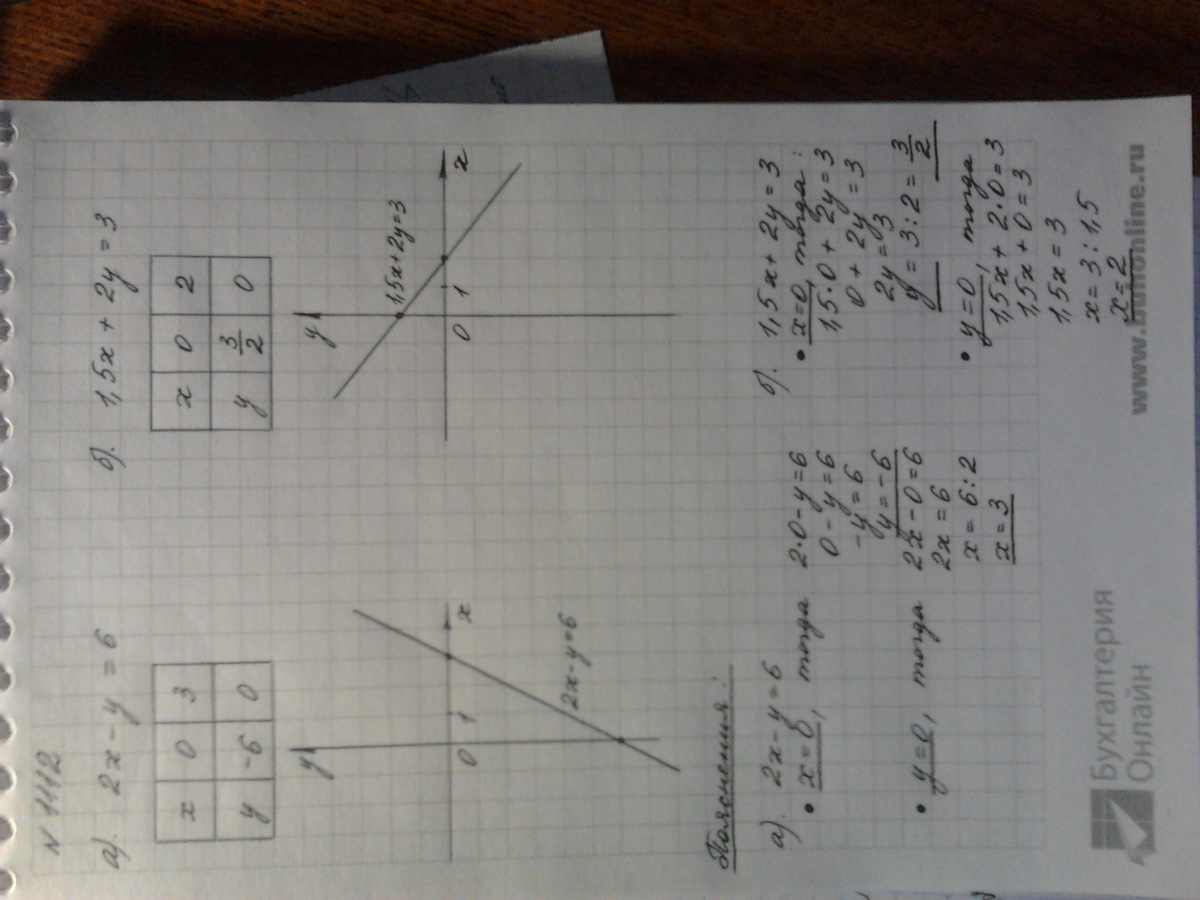 N 1112
а). 2x - y = 6
x 0 3
y -6 0
y
0 1 x
2x-y=6
б). 1,5x + 2y = 3
x 0 2
y 3/2 0
y
1,5x+2y=3
0 1 x
Пояснения:
а). 2x-y=6
• x=0, тогда 2·0-y=6
0-y=6
-y=6
y=-6
• y=0, тогда 2x-0=6
2x=6
x=6:2
x=3
б). 1,5x+2y=3
• x=0, тогда:
1,5·0+2y=3
0+2y=3
2y=3
y=3:2=3/2
• y=0, тогда
1,5x+2·0=3
1,5x+0=3
1,5x=3
x=3:1,5
x=2
Бухгалтерия
Онлайн
www.buhonline.ru